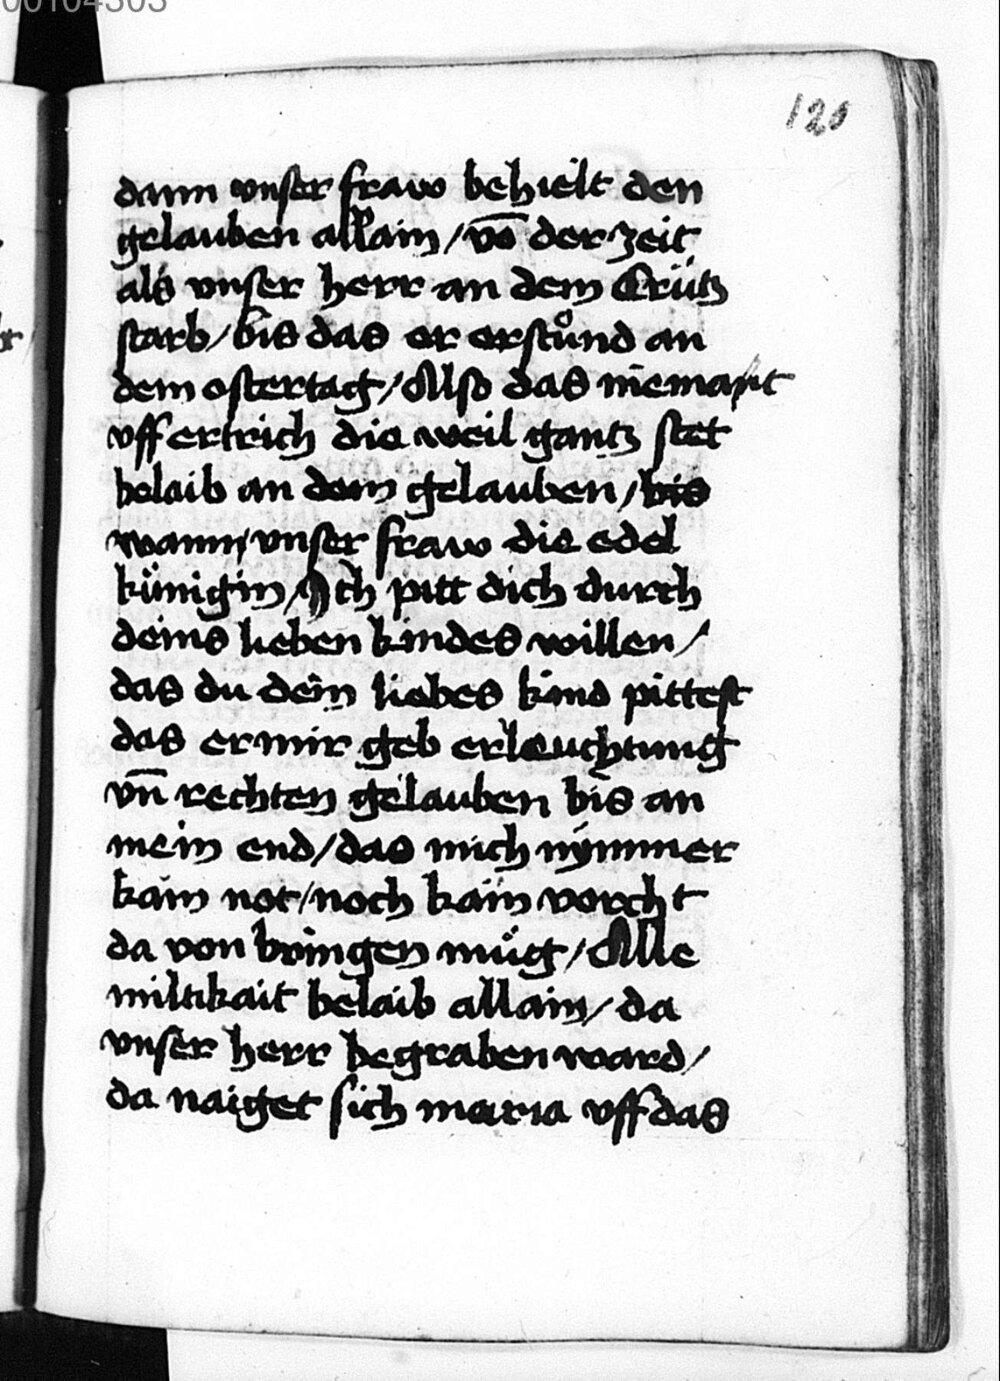 00104303
120
dann vnser fraw behielt den
gelauben allain / vō der zeit
als vnser herr an dem Crütz
starb / bis das er erstůnd an
dem ostertag / Also das niemant
vff ertrich die weil gantz stet
belaib an dem gelauben / bis
wann vnser fraw die edel
künigin / Ich pitt dich durch
deins lieben kindes willen /
das du dein liebes kind pittest
das er mir geb erleuchtung
vn̄ rechten gelauben bis an
mein end / das mich nymmer
kain not / noch kain vorcht
da von bringen müg / Alle
miltikait belaib allain / da
vnser herr begraben ward /
da naiget sich maria vff das